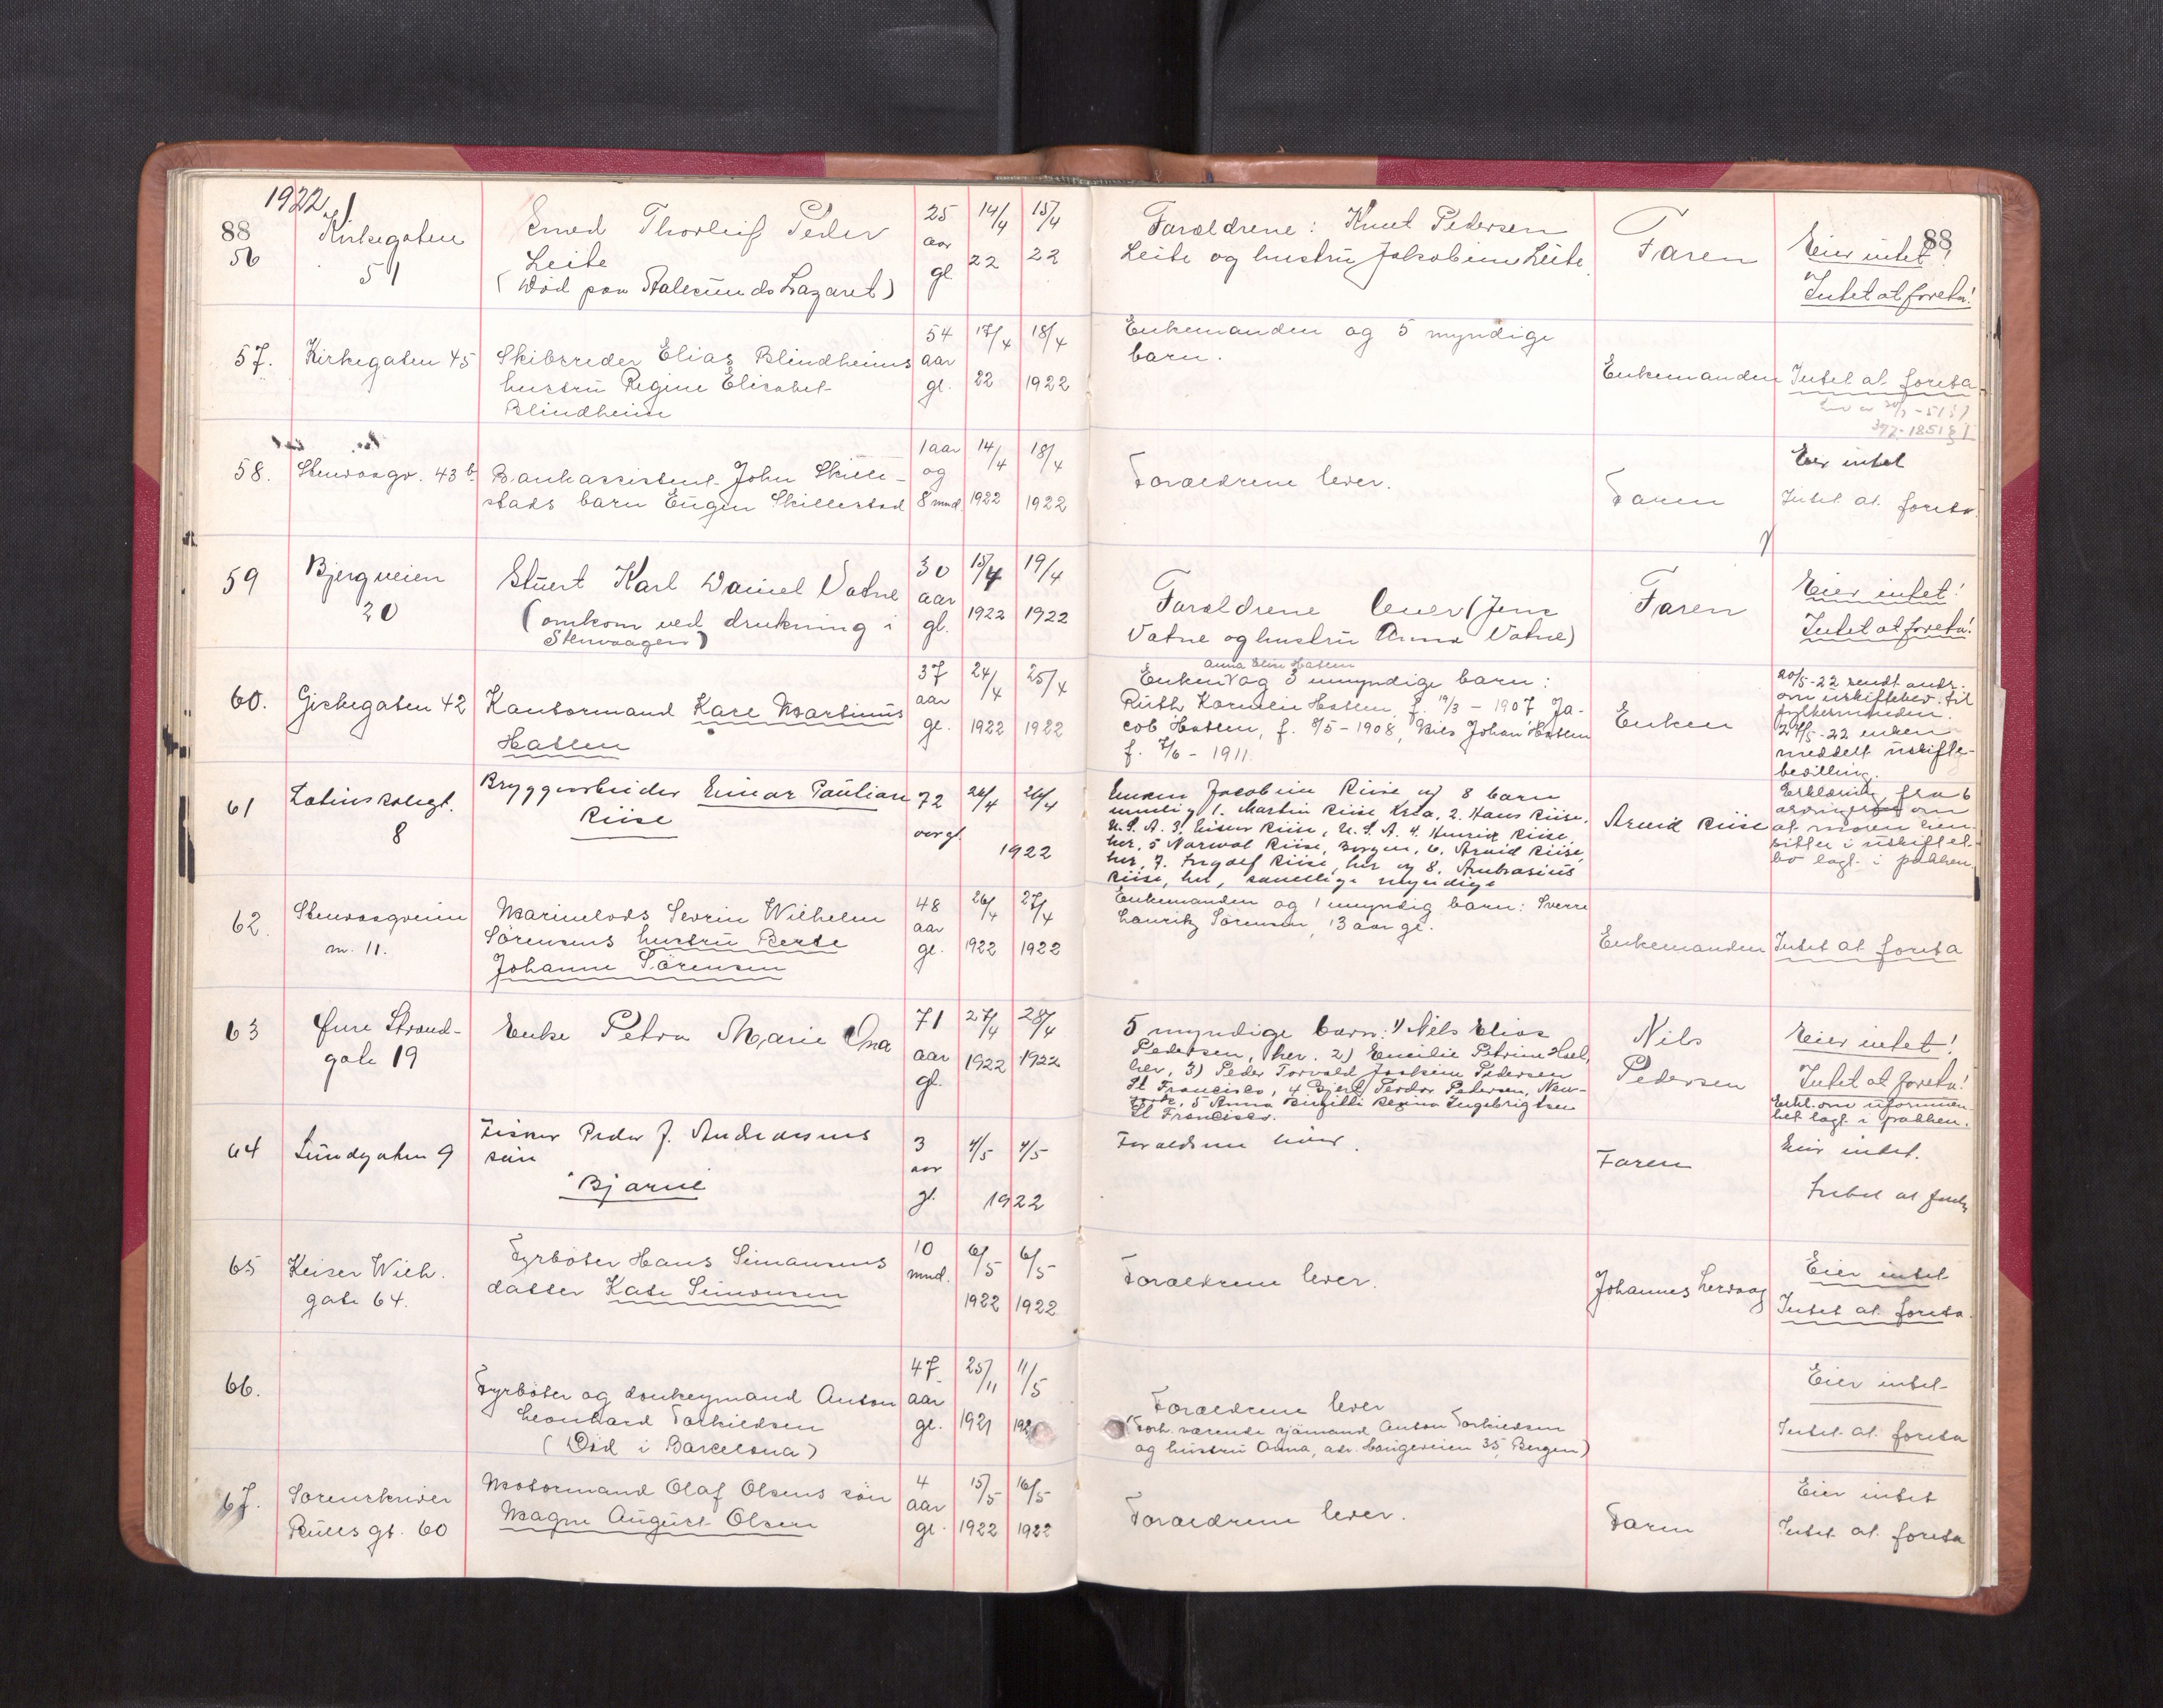 1922
88
88
56
Kirkegaten
51
Smed Thorleif Peder
Leite
(Død paa Aalesunds Lazaret)
25
aar
gl
14/4
22
15/4
22
Forældrene: Knut Pedersen
Leite og hustru Jakobine Leite.
Faren
Eier intet!
Intet at foreta!
57.
Kirkegaten 45
Skibsreder Elias Blindheims
hustru Regine Elisabet
Blindheim
54
aar
gl.
17/4
22
18/4
1922
Enkemanden og 5 myndige
barn.
Enkemanden
Intet at foreta.
58.
Stenvaagv. 43 b.
Bankassistent John Skille-
stads barn Eugen Skillestad
1 aar
og
8 mnd.
14/4
1922
18/4
1922
Forældrene lever.
Faren
Eier intet
Intet at foreta.
59
Bjergveien
20
Stuert Karl Daniel Vatne
(omkom ved drukning i
Stenvaagen)
30
aar
gl.
15/4
1922
19/4
1922
Forældrene lever (Jens
Vatne og hustru Anna Vatne)
Faren
Eier intet!
Intet at foreta!
60.
Giskegaten 42
Kontormand Kare Martinus
Hatlen
37
aar
gl.
24/4
1922
25/4
1922
Anna Elise Hatlen
Enken og 3 umyndige barn:
Ruth Kornelie Hatlen, f. 19/3 - 1907, Ja-
cob Hatlen, f. 9/5 - 1908, Nils Johan Hatlen
f. 7/6 - 1911.
Enken
20/5-22 sendt andr.
om uskiftebev. til
fylkesmanden.
24/5-22 enken
meddelt uskifte-
bevilling.
61
Latinskolegt.
8
Bryggearbeider Einar Paulian
Riise
72
aar gl.
26/4
26/4
1922
Enken Jacobine Riise og 8 barn
nemlig 1. Martin Riise Kr.a, 2. Hans Riise,
U.S.A. 3. Einar Riise, U.S.A. 4. Henrik Riise
her, 5 Narval Riise, Bergen, 6. Arvid Riise,
her, 7. Ingolf Riise, her og 8. Ambrosius
Riise, her, samtlige myndige
Arvid Riise
Erklæring fra 6
arvinger om
at moren hen-
sitter i uskiftet
bo lagt i pakken.
62.
Stenvaagveien
m. 11.
Marinelods Sevrin Wilhelm
Sørensens hustru Berte
Johanne Sørensen
48
aar
gl.
26/4
1922
27/4
1922
Enkemanden og 1 umyndig barn: Sverre
Lauritz Sørensen, 13 aar gl.
Enkemanden
Intet at foreta
63
Øvre Strand-
gate 19
Enke Petra Marie Ona
71
aar
gl.
27/4
1922
28/4
1922
5 myndige barn: 1) Nils Elias
Pedersen, her. 2) Emilie Petrine Hsel,
her, 3) Peder Torvald Joakim Pedersen
St Francisko, 4 Bjert Peder Pedersen, New-
york, 5 Anna Birgitte Regina Ingebrigtsen
St Francisco.
Nils
Pedersen
Eier intet!
Intet at foreta!
Erkl. om uformuen-
het lagt i pakken.
64
Lundgaten 9
Fisker Peder J. Andreasens
søn
Bjarne
3
aar
gl.
4/5
4/5
1922
Forældrene lever.
Faren
Eier intet.
Intet at foreta
65
Keiser Wilh.
gate 64.
Fyrbøter Hans Simonsens
datter Kate Simonsen
10
mnd.
6/5
1922
6/5
1922
Forældrene lever.
Johannes Lervaag
Eier intet
Intet at foreta.
66.
Fyrbøter og donkeymand Anton
Leonhard Torkildsen
(Død i Barcelona)
47
aar
gl.
25/11
1921
11/5
Forældrene lever
(Forh. værende sjømand Anton Torkildsen
og hustru Anna, adr. Haugeveien 35, Bergen)
Eier intet
Intet at foreta
67.
Sorenskriver
Rulls gt. 60
Motormand Olaf Olsens søn
Magne August Olsen
4
aar
gl.
15/5
1922
16/5
1922
Forældrene lever.
Faren
Eier intet
Intet at foreta